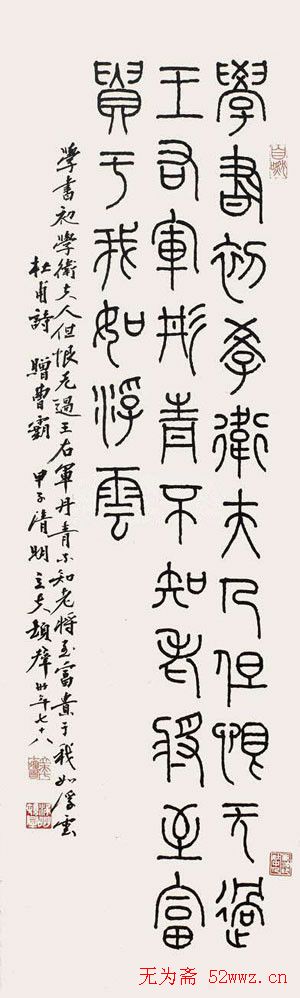 學書初學衛夫人但恨无過
王右軍丹青不知老將至富
貴于我如浮雲
學書初學衛夫人但恨无過王右軍丹青不知老將至富貴于我如浮雲
杜甫詩 贈曹霸 甲子清明立夫 年七十八
无为斋 52wwz.cn